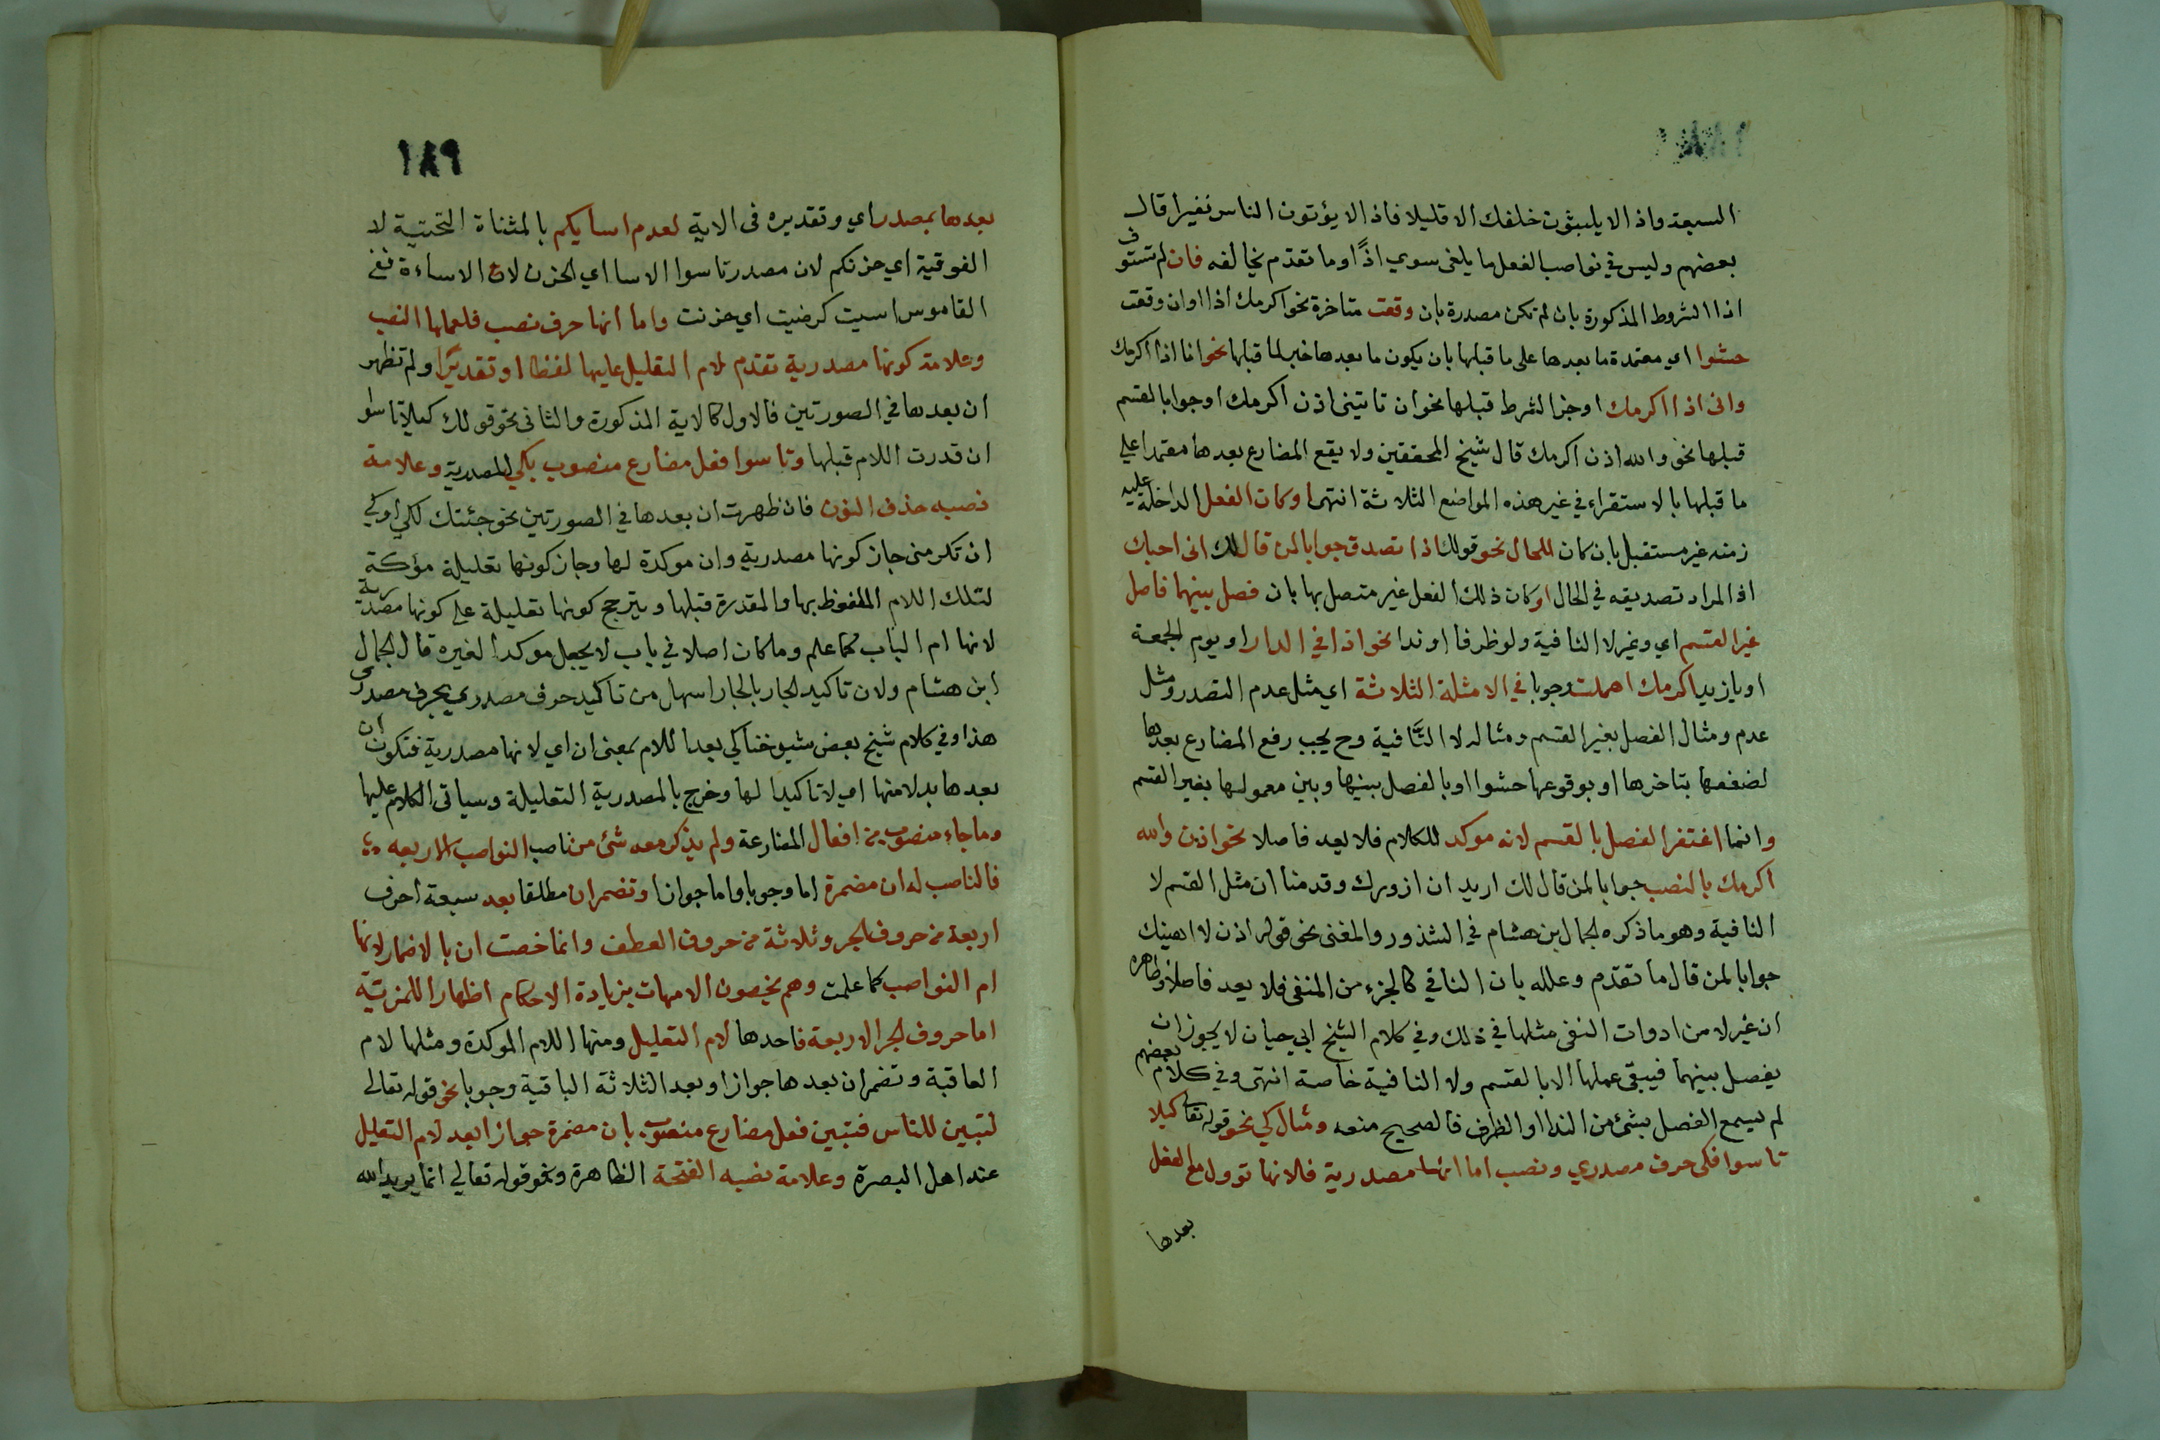 السبعة واذا لا يلبثون خلفك الا قليلا فاذا لا يؤتون الناس نقيرا قال
بعضهم وليس في نواصب الفعل ما يلغى سوي اذًا وما تقدم يخالفه فان لم تستوف
اذا الشروط المذكورة بان لم تكن مصدرة بان وقعت متاخرة نحو اكرمك اذا او ان وقعت
حشوا اي معتمدة ما بعدها على ما قبلها بان يكون ما بعدها خبر لما قبلها نحو انا اذا اكرمك
واني اذا اكرمك او جزا لشرط قبلها نحو ان تاتيني اذن اكرمك او جوابا لقسم
قبلها نحو والله اذن اكرمك قال شيخ المحققين ولا يقع المضارع بعدها معتمدا على
ما قبلها بالاستقراء في غير هذه المواضع الثلاثة انتهى او كان الفعل الداخلة عليه
زمنه غير مستقبل بان كان للحال نحو قولك اذا تصدق جوابا لمن قال لك اني احبك
اذ المراد تصديقه في الحال او كان ذلك الفعل غير متصل بها بان فصل بينهما فاصل
غير القسم اي وغير لا النافية ولو ظرفا او ندا نحو اذا في الدار او يوم الجمعة
او يا زيد اكرمك اهملت وجوبا في الامثلة الثلاثة اي مثل عدم التصدر ومثل
عدم ومثال الفصل بغير القسم ومثاله لا النافية وح يجب رفع المضارع بعدها
لضعفها بتاخرها او بوقوعها حشوا او بالفصل بينها وبين معمولها بغير القسم
وانما اغتفر الفصل بالقسم لانه موكد للكلام فلا يعد فاصلا نحو اذن والله
اكرمك بالنصب جوابا لمن قال لك اريد ان ازورك وقدمنا ان مثل القسم لا
النافية وهو ما ذكره الجمال بن هشام في الشذور والمغني نحو قوله اذن لا اهينك
جوابا لمن قال ما تقدم وعلله بان النافي كالجزء من المنفي فلا يعد فاصلا وظاهره
ان غير لا من ادوات النفى مثلها في ذلك وفي كلام الشيخ ابي حيان لا يجوز ان
يفصل بينهما فيبقى عملها الا بالقسم ولا النافية خاصة انتهى وفي كلام بعضهم
لم يسمع الفصل بشئ من الندا او الظرف فالصحيح منعه ومثال كي نحو قوله تعالى كيلا
تاسوا فكي حرف مصدري ونصب اما انها مصدرية فلانها توول مع الفعل
بعدها
١٨٩
بعدها بمصدر اي وتقديره في الاية لعدم اسايكم بالمثناة التحتية لا
الفوقية اي حزنكم لان مصدر تاسوا الاسا اي الحزن لا الاساءة ففي
القاموس اسيت كرضيت اي حزنت واما انها حرف نصب فلعملها النصب
وعلامة كونها مصدرية تقدم لام التعليل عليها لفظا او تقديرًا ولم تظهر
ان بعدها في الصورتين فالاول كالاية المذكورة والثاني نحو قولك كيلا تاسوا
ان قدرت اللام قبلها وتاسوا فعل مضارع منصوب بكي المصدرية وعلامة
نصبه حذف النون فان ظهرت ان بعدها في الصورتين نحو جئتك لكي او كي
ان تكرمني جاز كونها مصدرية وان موكدة لها وجاز كونها تعليلية مؤكدة
لتلك اللام الملفوظ بها والمقدرة قبلها ويترجح كونها تعليلة على كونها مصدرية
لانها ام الباب كما علم وما كان اصلا في باب لا يجعل موكدا لغيره قال الجمال
ابن هشام ولان تاكيد الجار بالجار اسهل من تاكيد حرف مصدري بحرف مصدري
هذا وفي كلام شيخ بعض شيوخنا كي بعد اللام بمعنى ان اي لانها مصدرية فتكون ان
بعدها بدلا منها اي لا تاكيدا لها وخرج بالمصدرية التعليلة وسياتي الكلام عليها
وما جاء منصوب من افعال المضارعة ولم يذكر معه شئ من ناصب النواصب الاربعه
فالناصب له ان مضمرة اما وجوبا واما جوازا وتضمر ان مطلقا بعد سبعة احرف
اربعة من حروف الجر وثلاثة من حروف العطف وانما خصت ان بالاضمار لانها
ام النواصب كما علمت وهم يخصون الامهات بزيادة الاحكام اظهارا للمزية
اما حروف الجر الاربعة فاحدها لام التعليل ومنها اللام الموكدة ومثلها لام
العاقبة وتضمر ان بعدها جوازا وبعد الثلاثة الباقية وجوبا نحو قوله تعالى
لتبين للناس فتبين فعل مضارع منصوب بان مضمرة جوازا بعد لام التعليل
عند اهل البصرة وعلامة نصبه الفتحة الظاهرة ونحو قوله تعالى انما يريد الله